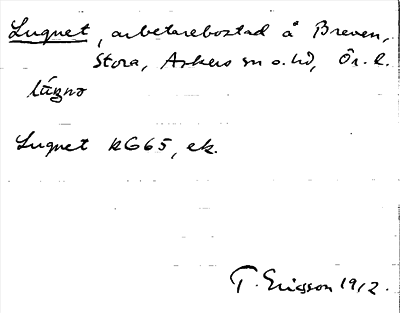 Lugnet, arbetarebostad å Breven,
Stora, Askers sn o. hd, Ör. l.
lúgno
Lugnet RG65, ek.
T. Ericsson 1912.